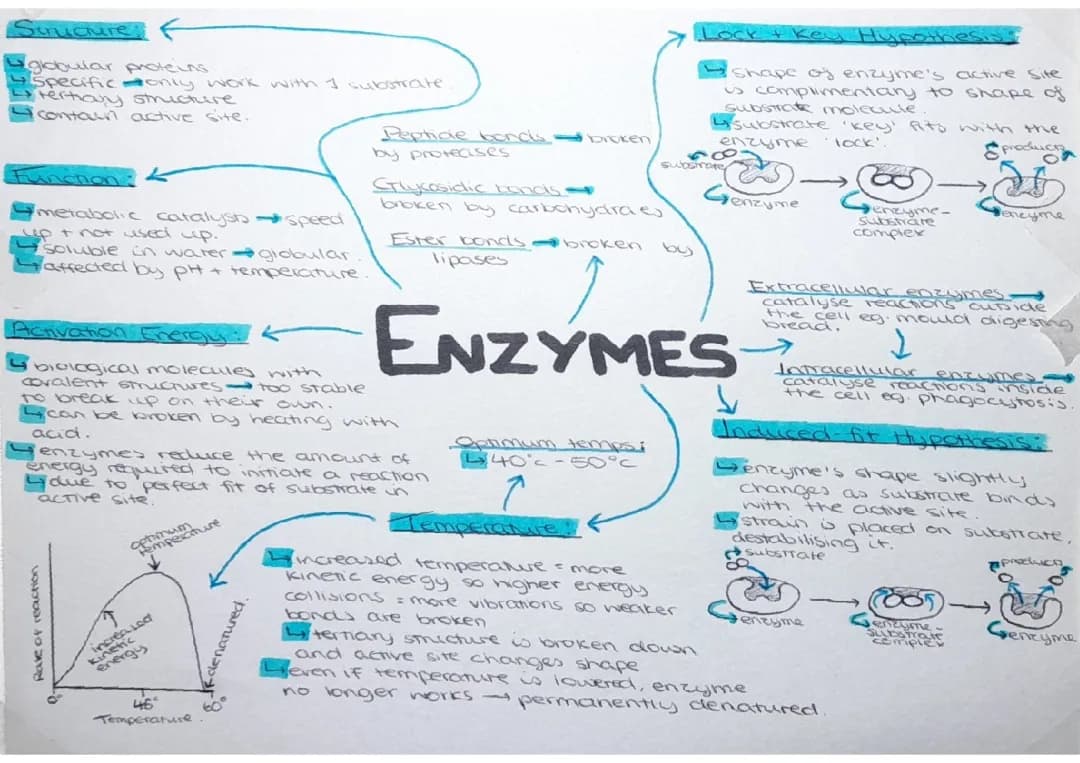 Structure:
globular proteins
specific → only work with 1 substrate
tertiary structure
contain active site.
Function:
metabolic catalysts → speed
up + not used up.
soluble in water → globular
affected by pH + temperature.
Activation Energy:
biological molecules with
covalent structures → too stable
to break up on their own.
can be broken by heating with
acid.
enzymes reduce the amount of
energy required to initiate a reaction
due to perfect fit of substrate in
active site.
Peptide bonds → broken
by proteases
Glycosidic bonds →
broken by carbohydrates
Ester bonds → broken by
lipases
ENZYMES
Lock + Key Hypothesis:
shape of enzyme's active site
is complimentary to shape of
substrate molecule.
substrate 'key' fits with the
enzyme 'lock'.
substrate
enzyme
enzyme-
substrate
complex
products
enzyme
Extracellular enzymes →
catalyse reactions outside
the cell eg. mould digesting
bread.
Intracellular enzymes →
catalyse reactions inside
the cell eg. phagocytosis.
Induced-fit Hypothesis:
enzyme's shape slightly
changes as substrate binds
with the active site.
strain is placed on substrate,
destabilising it.
substrate
enzyme
enzyme-
substrate
complex
products
enzyme
Optimum temps:
40°c - 50°c
Temperature:
increased temperature = more
kinetic energy so higher energy
collisions = more vibrations so weaker
bonds are broken
tertiary structure is broken down
and active site changes shape
even if temperature is lowered, enzyme
no longer works → permanently denatured.
Rate of reaction
optimum
temperature
increased
kinetic
energy
denatured.
0°
45°
60°
Temperature.